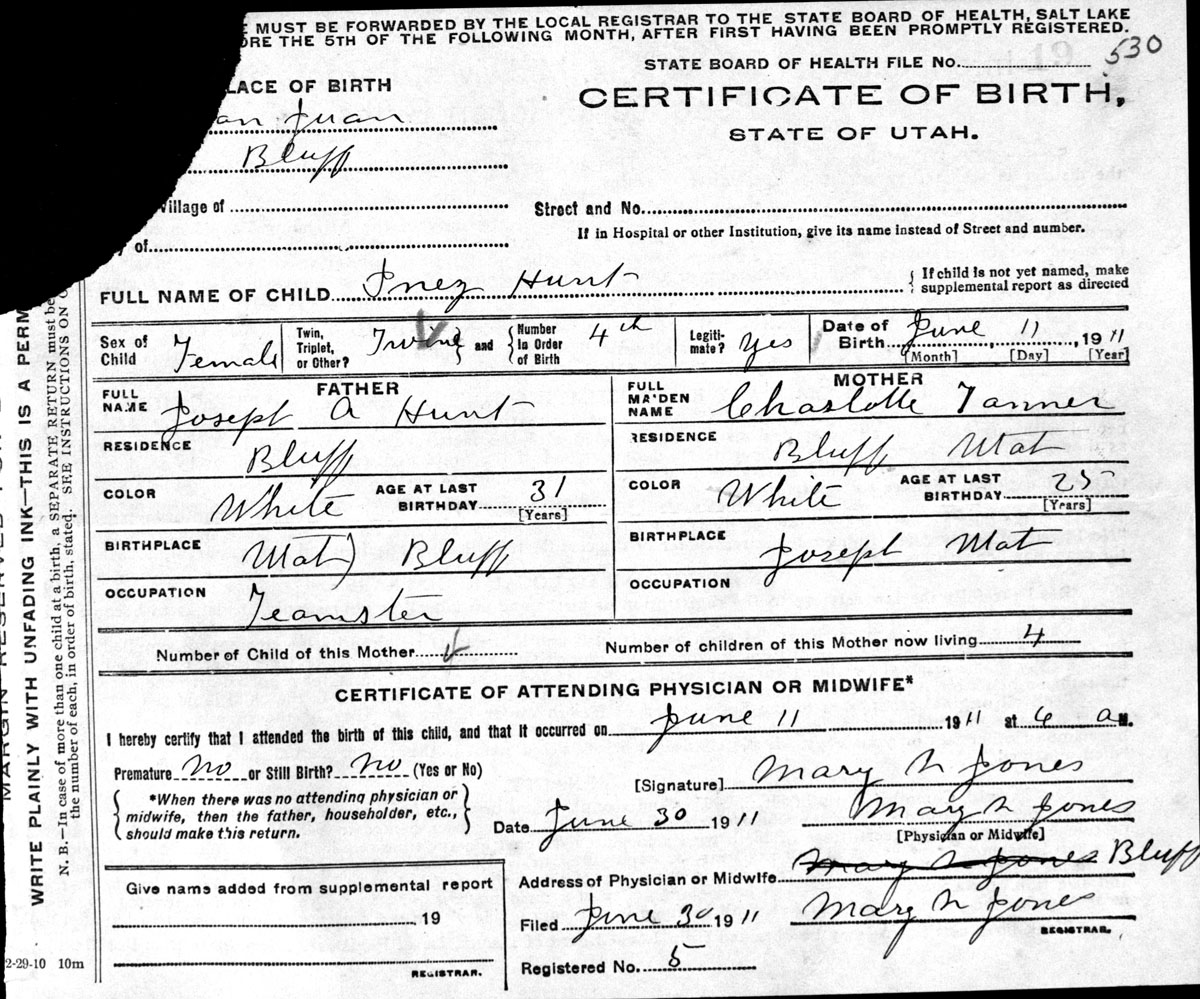 E MUST BE FORWARDED BY THE LOCAL REGISTRAR TO THE STATE BOARD OF HEALTH, SALT LAKE
ORE THE 5TH OF THE FOLLOWING MONTH, AFTER FIRST HAVING BEEN PROMPTLY REGISTERED.
STATE BOARD OF HEALTH FILE No. 530
LACE OF BIRTH
CERTIFICATE OF BIRTH,
an Juan
STATE OF UTAH.
Bluff
Village of
Street and No.
y of
If in Hospital or other Institution, give its name instead of Street and number.
FULL NAME OF CHILD Inez Hunt { If child is not yet named, make supplemental report as directed
Sex of Child Female Twin, Triplet, or Other? } and { Number in Order of Birth 4th Legiti-mate? yes Date of Birth June 11, 1911
[Month] [Day] [Year]
FATHER MOTHER
FULL NAME Joseph A Hunt FULL MAIDEN NAME Charlotte Tanner
RESIDENCE Bluff RESIDENCE Bluff Utat
COLOR White AGE AT LAST BIRTHDAY 31 [Years] COLOR White AGE AT LAST BIRTHDAY 25 [Years]
BIRTHPLACE Utat) Bluff BIRTHPLACE Joseph Utat
OCCUPATION Teamster OCCUPATION
Number of Child of this Mother Number of children of this Mother now living 4
CERTIFICATE OF ATTENDING PHYSICIAN OR MIDWIFE*
I hereby certify that I attended the birth of this child, and that it occurred on June 11 1911 at 6 a M.
Premature no or Still Birth? no (Yes or No)
[Signature] Mary N Jones
{ *When there was no attending physician or midwife, then the father, householder, etc., should make this return. }
Date June 30 1911 Mary N Jones
[Physician or Midwife]
Address of Physician or Midwife Mary N Jones Bluff
Give name added from supplemental report
19
REGISTRAR.
Filed June 30 1911 Mary N Jones
REGISTRAR.
Registered No. 5
2-29-10 10m
MARGIN RESERVED FOR
WRITE PLAINLY WITH UNFADING INK—THIS IS A PERM
N. B.—In case of more than one child at a birth, a SEPARATE RETURN must be
the number of each, in order of birth, stated. SEE INSTRUCTIONS ON